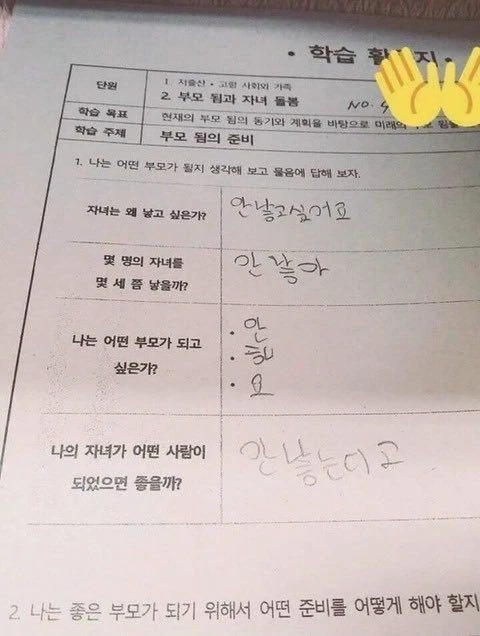 • 학습 활동지 •
단원
1. 저출산・고령 사회와 가족
2. 부모 됨과 자녀 돌봄
NO.
학습 목표
현재의 부모 됨의 동기와 계획을 바탕으로 미래의
학습 주제
부모 됨의 준비
1. 나는 어떤 부모가 될지 생각해 보고 물음에 답해 보자.
자녀는 왜 낳고 싶은가?
안낳고싶어요
몇 명의 자녀를
몇 세 쯤 낳을까?
안 낳아
나는 어떤 부모가 되고
싶은가?
• 안
• 해
• 요
나의 자녀가 어떤 사람이
되었으면 좋을까?
안낳는다고
2. 나는 좋은 부모가 되기 위해서 어떤 준비를 어떻게 해야 할지